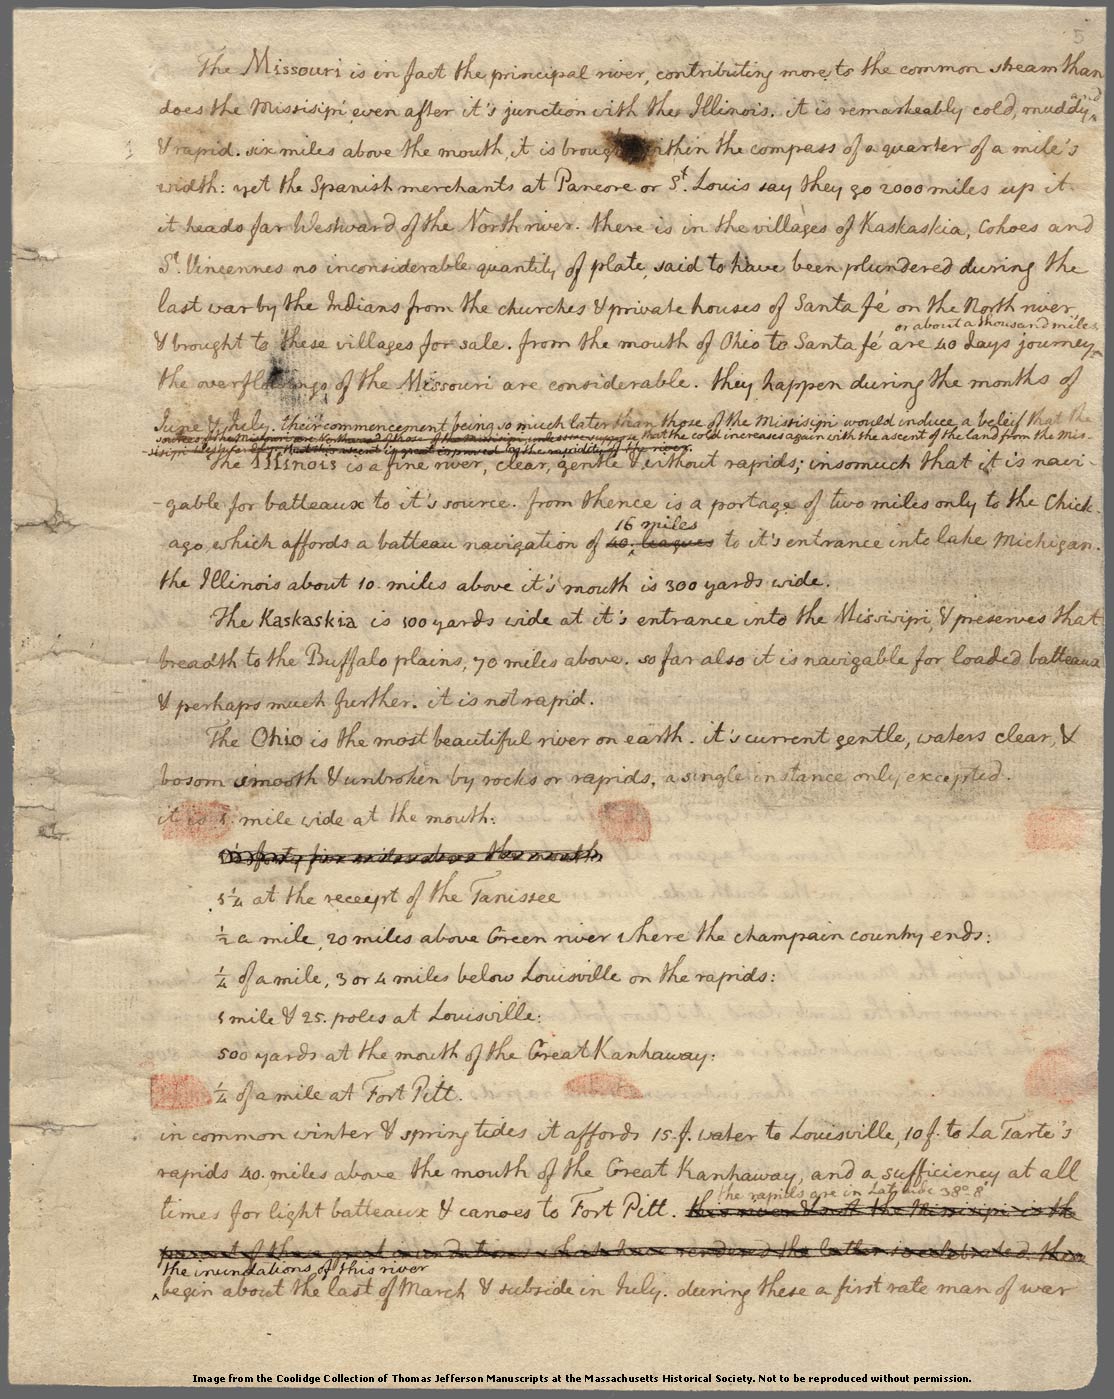 5
The Missouri is in fact the principal river, contributing more to the common stream than
does the Missisipi even after it's junction with the Illinois. it is remarkeably cold, muddy and
& rapid. six miles above the mouth, it is brought within the compass of a quarter of a mile's
width: yet the Spanish merchants at Pancore or St. Louis say they go 2000 miles up it.
it heads far Westward of the North river. there is in the villages of Kaskaskia, Cohoes and
St. Vincennes no inconsiderable quantity of plate, said to have been plundered during the
last war by the Indians from the churches & private houses of Santa fé on the North river,
or about a thousand miles
& brought to these villages for sale. from the mouth of Ohio to Santa fé are 40 days journey
the overflowings of the Missouri are considerable. they happen during the months of
June & July. their commencement being so much later than those of the Missisipi would induce a belief that the
sources of the Missouri are Northward of those of the Missisipi, unless we suppose that the cold increases again with the ascent of the land from the Mis-
sisipi Westward. that this ascent is great is proved by the rapidity of the river.
The Illinois is a fine river, clear, gentle & without rapids; insomuch that it is navi-
-gable for batteaux to it's source. from thence is a portage of two miles only to the Chick-
16 miles
ago, which affords a batteau navigation of 40. leagues to it's entrance into lake Michigan.
the Illinois about 10. miles above it's mouth is 300 yards wide.
The Kaskaskia is 100 yards wide at it's entrance into the Missisipi, & preserves that
breadth to the Buffalo plains, 70 miles above. so far also it is navigable for loaded batteaux
& perhaps much further. it is not rapid.
The Ohio is the most beautiful river on earth. it's current gentle, waters clear, &
bosom smooth & unbroken by rocks or rapids, a single instance only excepted.
it is 1. mile wide at the mouth:
forty five miles above the mouth
1 1/4 at the receipt of the Tanissee
1/2 a mile, 20 miles above Green river where the champain country ends:
1/4 of a mile, 3 or 4 miles below Louisville on the rapids:
1 mile & 25. poles at Louisville:
500 yards at the mouth of the Great Kanhaway:
1/4 of a mile at Fort Pitt.
in common winter & spring tides it affords 15. f. water to Louisville, 10 f. to La Tarte's
rapids 40. miles above the mouth of the Great Kanhaway, and a sufficiency at all
the rapids are in Latitude 38° 8'
times for light batteaux & canoes to Fort Pitt. this river & not the Missisipi is the
parent of those great inundations which have rendered the latter so celebrated. they
the inundations of this river
begin about the last of March & subside in July. during these a first rate man of war
Image from the Coolidge Collection of Thomas Jefferson Manuscripts at the Massachusetts Historical Society. Not to be reproduced without permission.